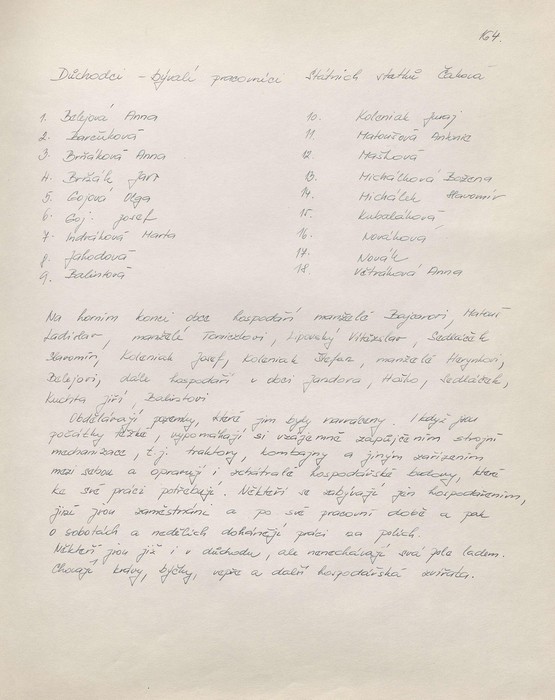 164.
Důchodci - bývalí pracovníci Státních statků Čaková
1. Belejová Anna
2. Barčuková
3. Brňáková Anna
4. Brňák Jan
5. Gojová Olga
6. Goj Josef
7. Indráková Marta
8. Jahodová
9. Balintová
10. Koleniak Juraj
11. Matoušová Antonie
12. Mašková
13. Michálková Božena
14. Michálek Slavomír
15. Kubaláková
16. Nováková
17. Novák
18. Větráková Anna
Na horním konci obce hospodaří manželé Matouš
Ladislav, manželé Lipovský Vítězslav, Sedláček
Slavomír, Koleniak Josef, Koleniak Štefan, manželé
Belejovi, dále hospodaří v obci Jandora, Haško, Sedláček,
Kuchta Jiří, Balintovi
Obdělávají pozemky, které jim byly navráceny. I když jsou
počátky těžké, vypomáhají si vzájemně zapůjčením strojní
mechanizace, t.j. traktory, kombajny a jiným zařízením
mezi sebou a opravují i zchátralé hospodářské budovy, které
ke své práci potřebují. Někteří se zabývají jen hospodařením,
jiní jsou zaměstnáni a po své pracovní době a pak
o sobotách a nedělích dohánějí práci na polích.
Někteří jsou již i v důchodu, ale nenechávají svá pole ladem.
Chovají krávy, býčky, vepře a další hospodářská zvířata.